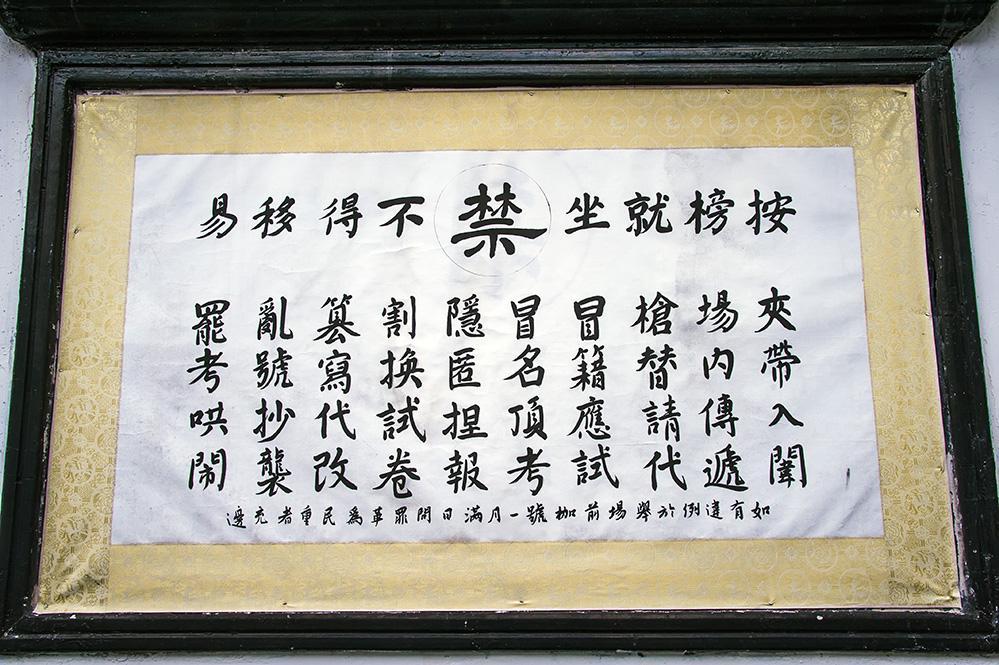 按榜就坐禁不得移易
夾帶入闈
場內傳遞
槍替請代
冒籍應試
冒名頂考
隱匿捏報
割換試卷
篡寫代改
亂號抄襲
罷考哄閙
如有違例於舉場前枷號一月滿日問罪革為民重者充邊